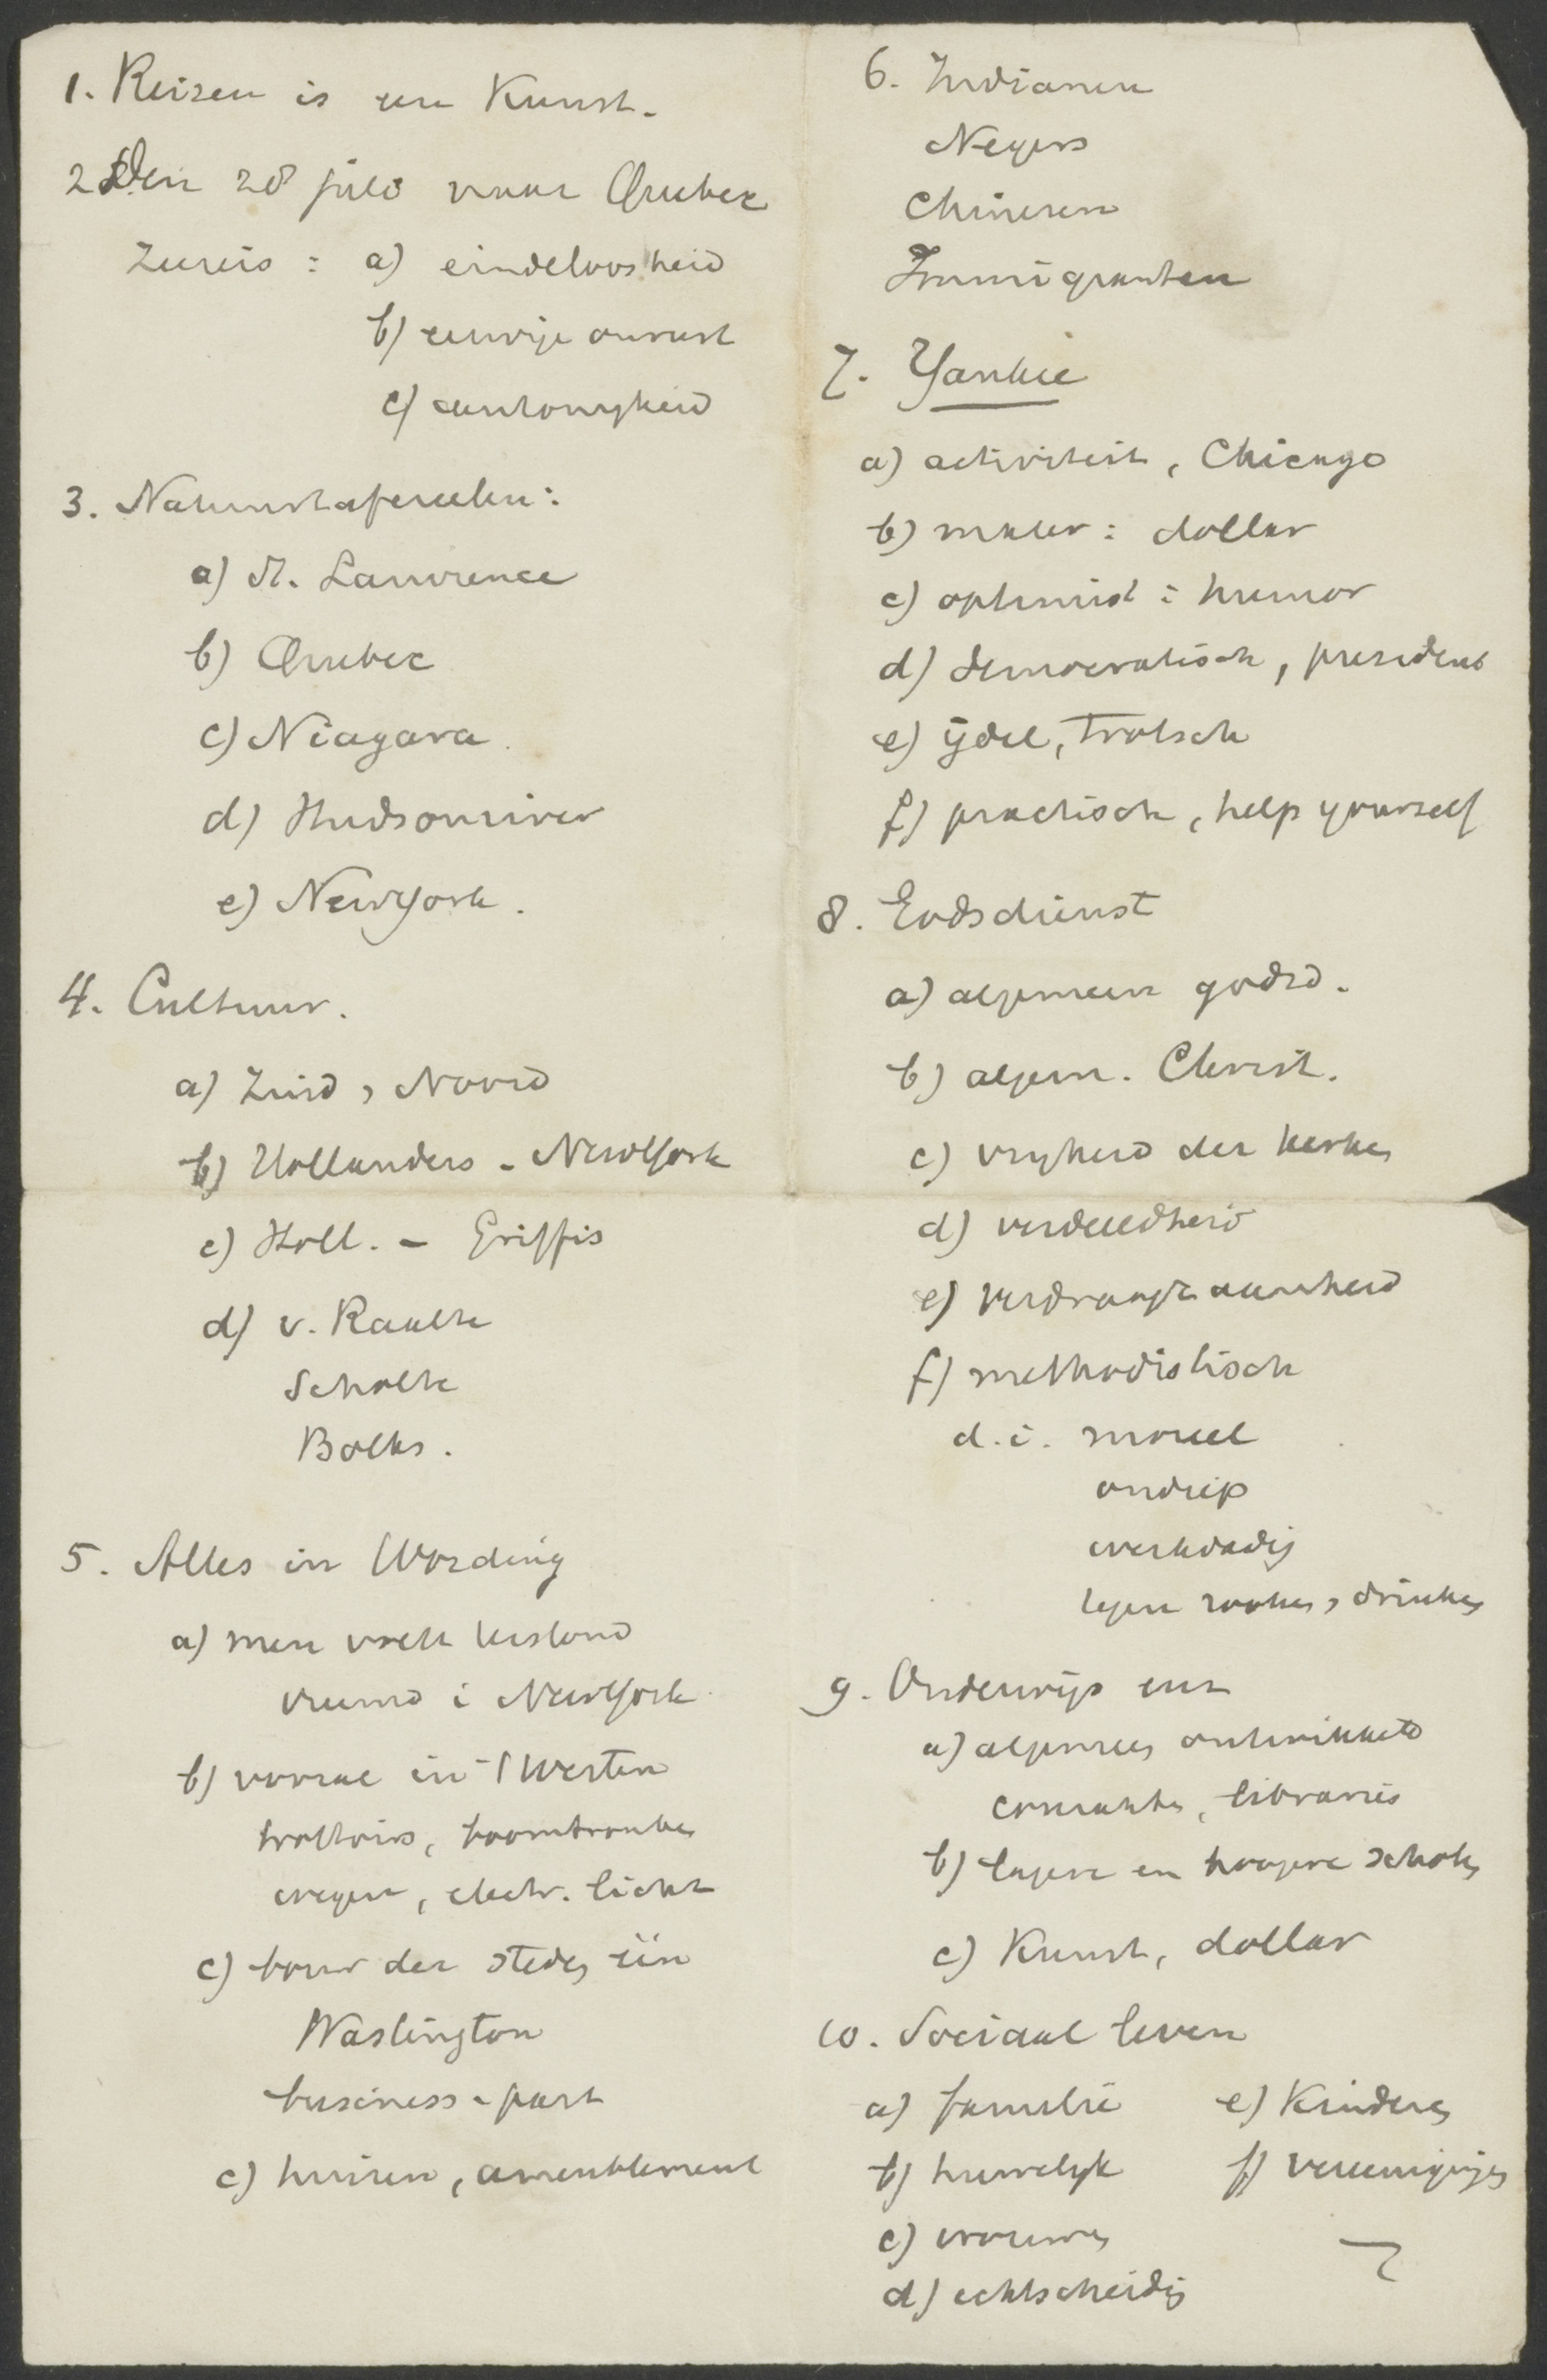 1. Reizen is een Kunst.
2. Den 28 juli naar Quebec
Zeereis : a) eindeloosheid
b) eeuwige onrust
c) eentonigheid
3. Natuurtafereelen:
a) St. Lawrence
b) Quebec
c) Niagara.
d) Hudsonriver
e) New York.
4. Cultuur.
a) Zuid, Noord
b) Hollanders - New York
c) Holl. - Griffis
d) v. Raalte
Scholte
Bolks.
5. Alles in Wording
a) men voelt
vreemd i New York
b) vooral in 't Westen
trottoirs, boomtronken
wegen, electr. licht
c) bouw der steden één
Washington
business-part
c) huizen, ameublement
6. Indianen
Negers
Chinezen
Immigranten
7. Yankee
a) activiteit, Chicago
b) maker : dollar
c) optimist : humor
d) democratisch, president
e) ijdel, trotsch
f) practisch, help yourself
8. Godsdienst
a) algemeen godsd.
b) algem. Christ.
c) vrijheid der kerken
d) verdeeldheid
e) verdraagzaamheid
f) methodistisch
d.i. moreel
ondiep
werkdadig
tegen rooken, drinken
9. Onderwijs enz
a) algemeen ontwikkeld
couranten, libraries
b) lagere en hoogere scholen
c) Kunst, dollar
10. Sociaal leven
a) familie
b) huwelijk
c) vrouwen
d) echtscheiding
e) Kinderen
f) vereenigingen